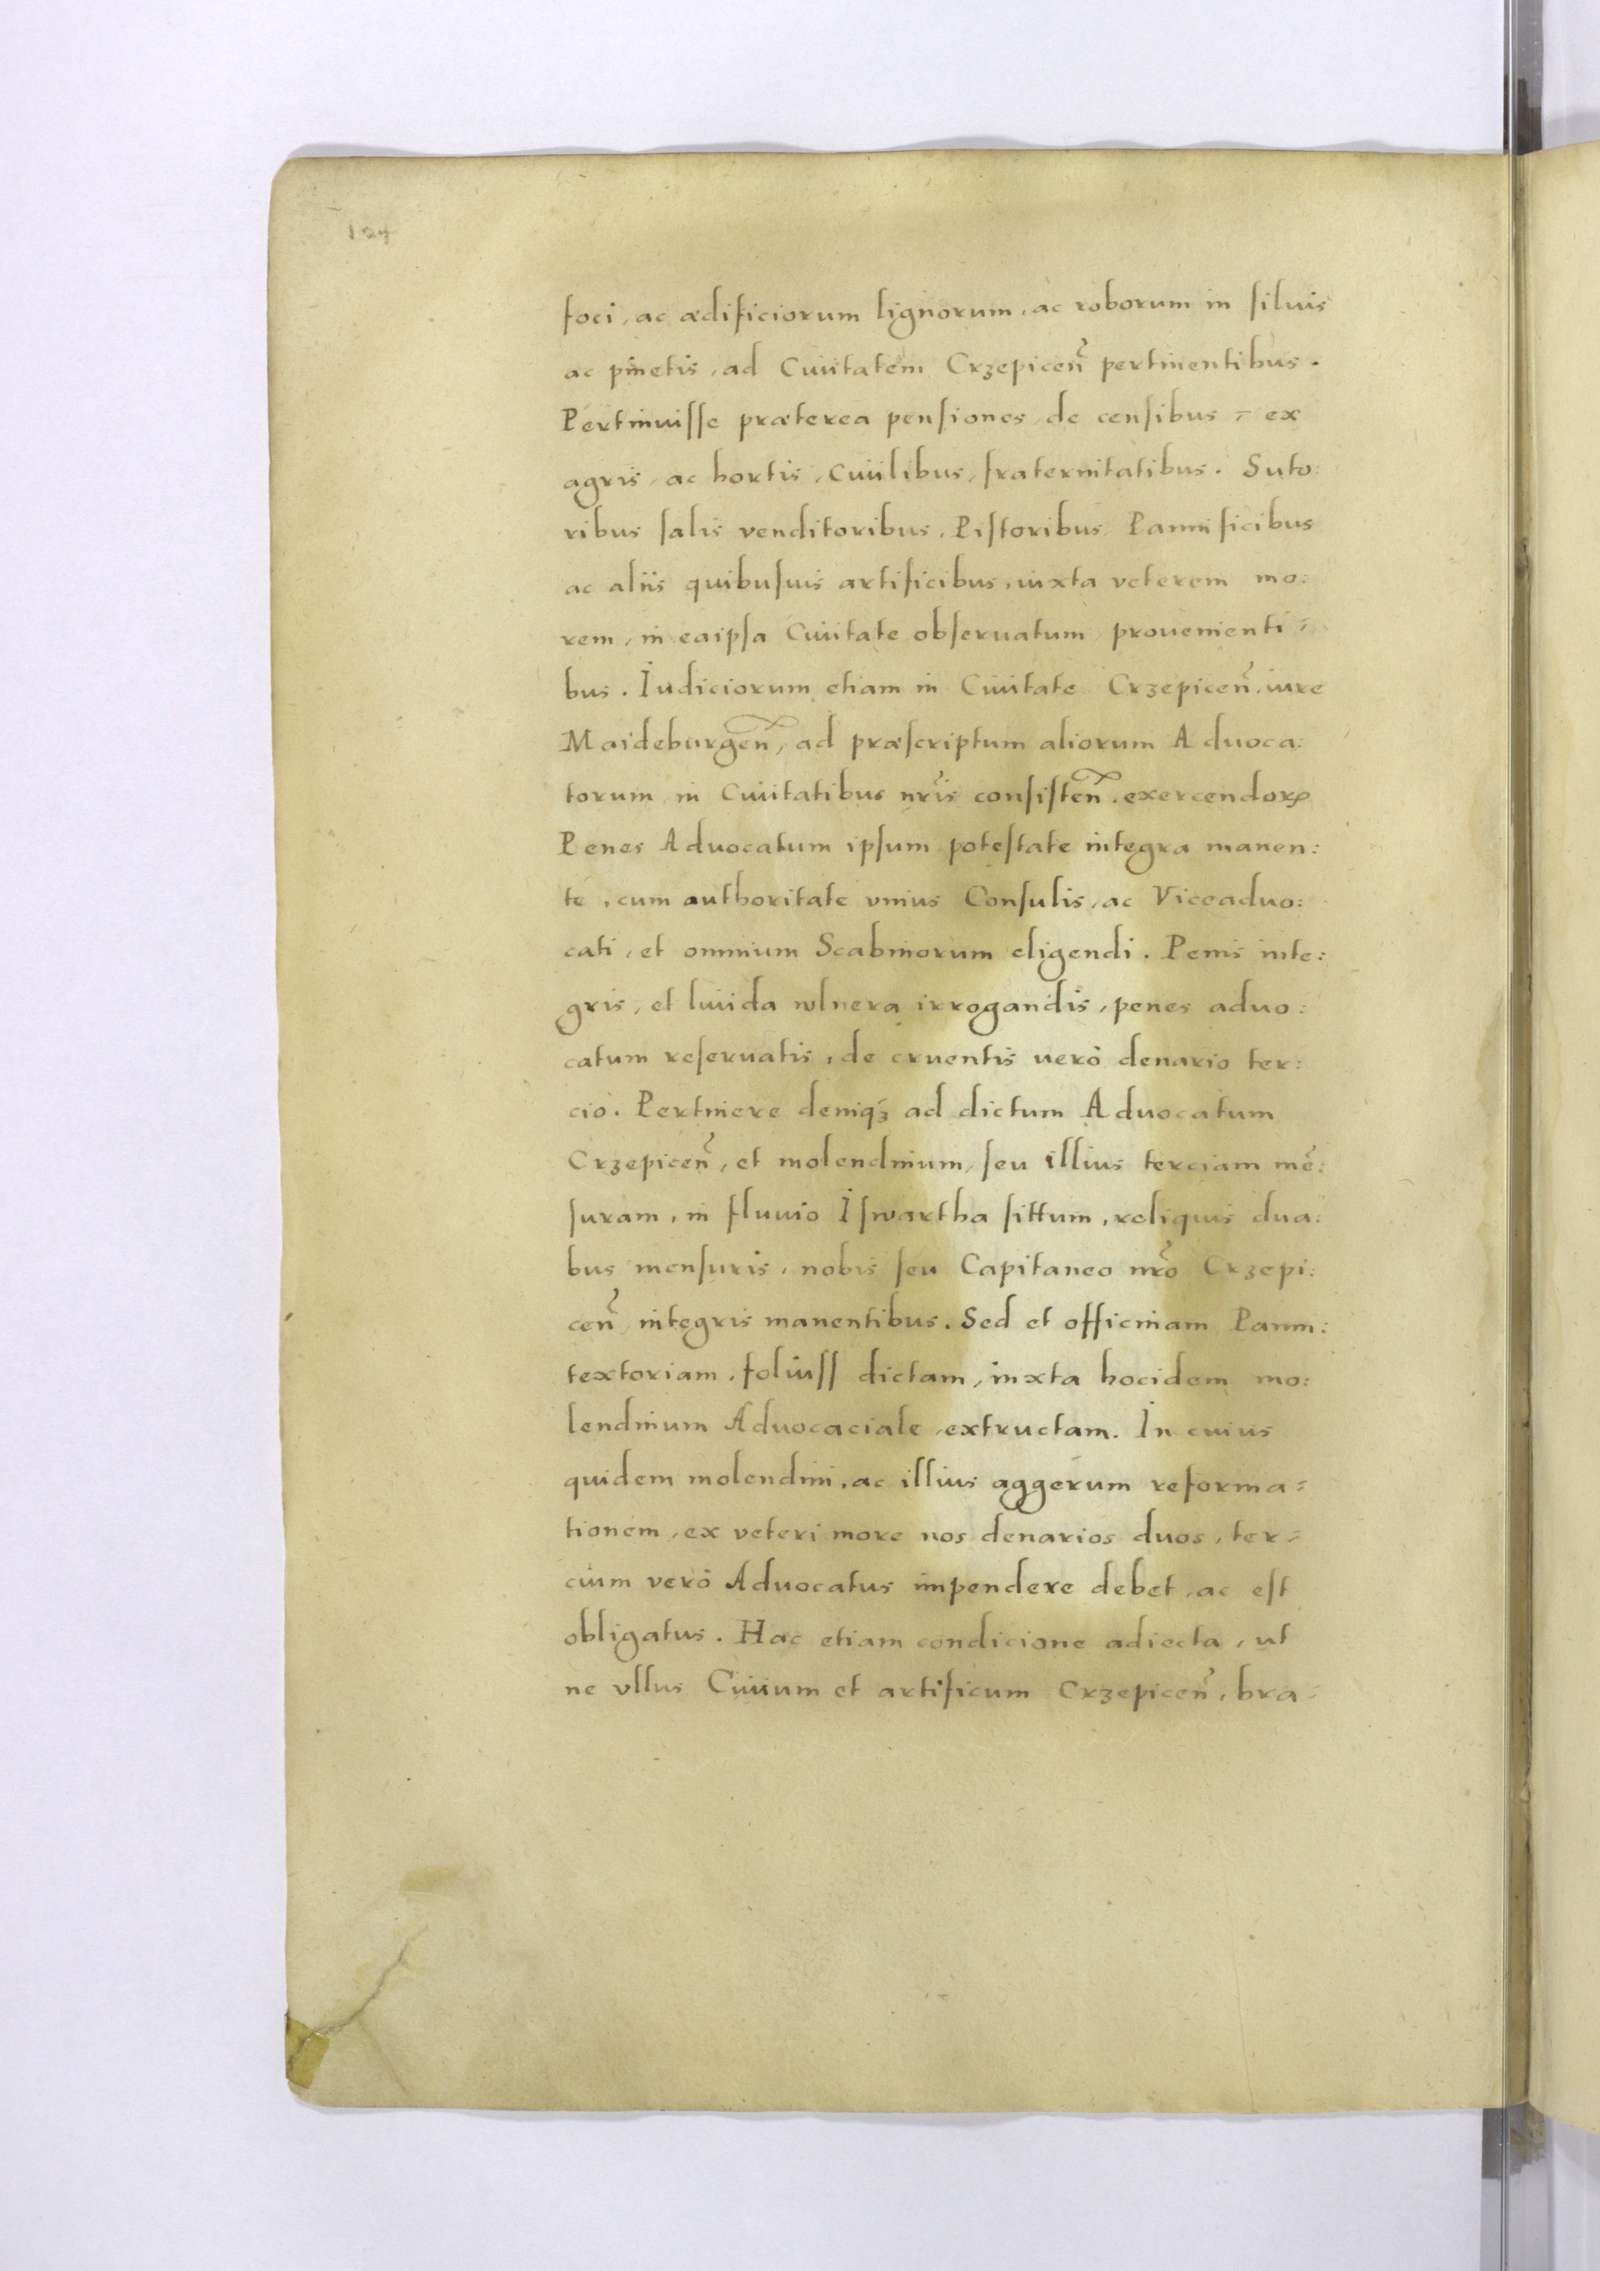 124
foci, ac ædificiorum lignorum, ac roborum in siluis
ac pinetis, ad Ciuitatem Crzepiceñ pertinentibus.
Pertinuisse præterea pensiones de censibus = ex
agris, ac hortis, Ciuilibus, fraternitatibus. Suto:
ribus salis venditoribus, Pistoribus Pannificibus
ac aliis quibusuis artificibus, iuxta veterem mo:
rem, in eaipsa Ciuitate obseruatum prouenienti=
bus. Iudiciorum etiam in Ciuitate Crzepiceñ, iure
Maideburgeñ, ad præscriptum aliorum Aduoca:
torum in Ciuitatibus nr̃is consisteñ, exercendoꝝ
Penes Aduocatum ipsum potestate integra manen:
te, cum authoritate vnius Consulis, ac Viceaduo:
cati, et omnium Scabinorum eligendi. Penis inte:
gris, et liuida wlnera irrogandis, penes aduo:
catum reseruatis, de cruentis uerò denario ter:
cio. Pertinere deniqꝫ ad dictum Aduocatum
Crzepiceñ, et molendinum, seu illius terciam mẽ:
suram, in fluuio Iswartha sittum, reliquis dua:
bus mensuris, nobis seu Capitaneo nr̃o Crzepi:
ceñ integris manentibus. Sed et officinam Panni:
textoriam, foliuss dictam, iuxta hocidem mo:
lendinum Aduocaciale, extructam. In cuius
quidem molendini, ac illius aggerum reforma=
tionem, ex veteri more nos denarios duos, ter=
cium verò Aduocatus impendere debet, ac est
obligatus. Hac etiam condicione adiecta, ut
ne vllus Ciuium et artificum Crzepiceñ, bra=